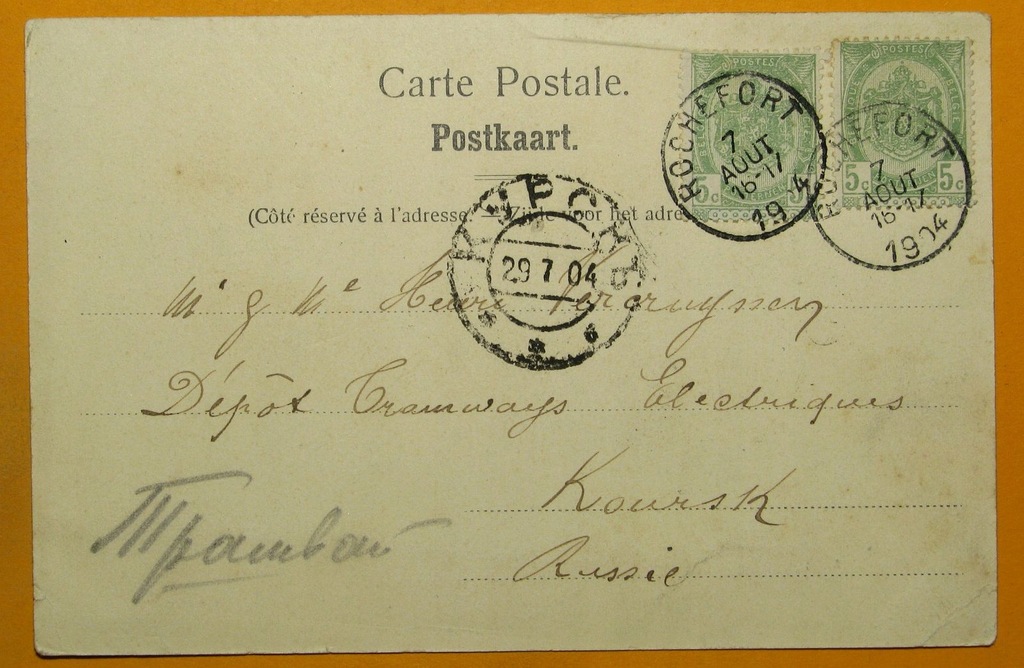 Carte Postale.
Postkaart.
(Côté réservé à l'adresse. — Zijde voor het adre
POSTES
5c 5c
POSTES
5c 5c
ROCHEFORT
7
AOUT
16-17
1904
ROCHEFORT
7
AOUT
16-17
1904
КУРСКЪ
29 7 04
Mr & Me Henri Vercruyssen
Dépôt Tramways Electriques
Koursk
Russie
Трамвай